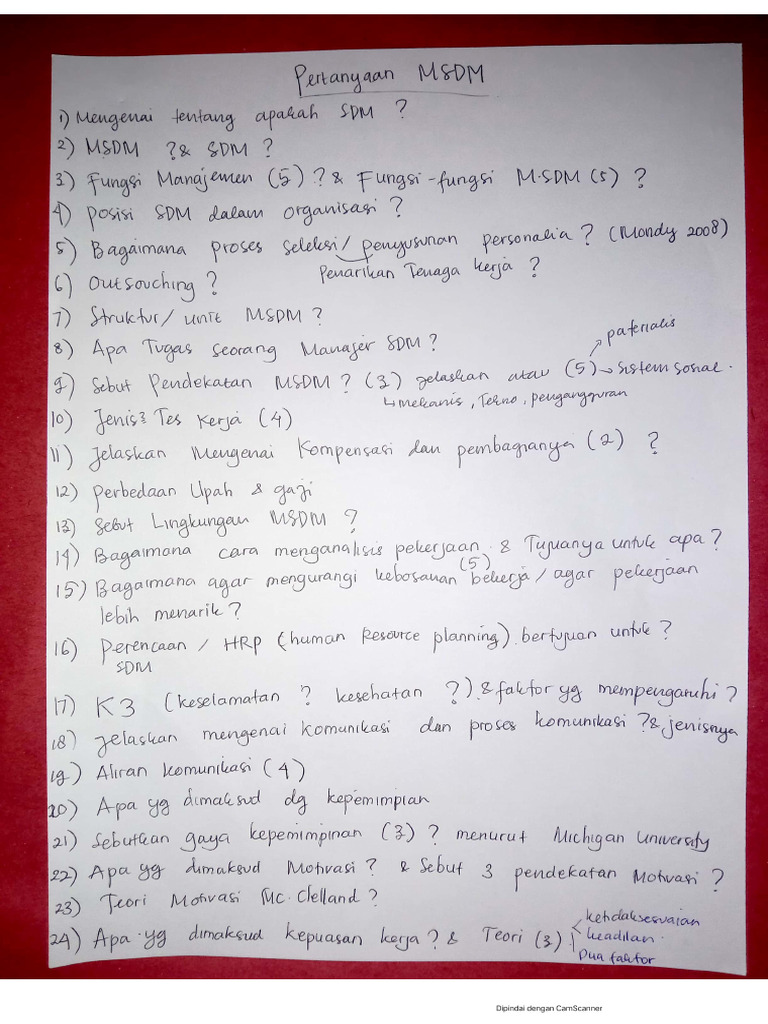 Pertanyaan MSDM
1) Mengenai tentang apakah SDM ?
2) MSDM ? & SDM ?
3) Fungsi Manajemen (5) ? & Fungsi-fungsi M.SDM (5) ?
4) Posisi SDM dalam organisasi ?
5) Bagaimana proses seleksi / penyusunan personalia ? (Mondy 2008)
Penarikan Tenaga kerja ?
6) Outsouching ?
7) Struktur / unit MSDM ?
8) Apa Tugas seorang Manajer SDM ?
paterialis
9) Sebut Pendekatan MSDM ? (3) jelaskan atau (5) → sistem sosial.
↳ mekanis, Tekno, pengangguran
10) Jenis² Tes Kerja (4)
11) Jelaskan Mengenai Kompensasi dan pembagianya (2) ?
12) Perbedaan Upah & gaji
13) Sebut Lingkungan MSDM ?
14) Bagaimana cara menganalisis pekerjaan & Tujuanya untuk apa ?
(5)
15) Bagaimana agar mengurangi kebosanan bekerja / agar pekerjaan
lebih menarik ?
16) Perencaan / HRP (human Resource planning) bertujuan untuk ?
SDM
17) K3 (keselamatan ? kesehatan ?) & faktor yg mempengaruhi ?
18) Jelaskan mengenai komunikasi dan proses komunikasi ? & jenisnya
19) Aliran komunikasi (4)
20) Apa yg dimaksud dg kepemimpian
21) Sebutkan gaya kepemimpinan (3) ? menurut Michigan University
22) Apa yg dimaksud Motivasi ? & Sebut 3 pendekatan Motivasi ?
23) Teori Motivasi Mc. Clelland ?
24) Apa yg dimaksud kepuasan kerja ? & Teori (3)
ketidaksesuaian
keadilan.
Dua faktor
Dipindai dengan CamScanner